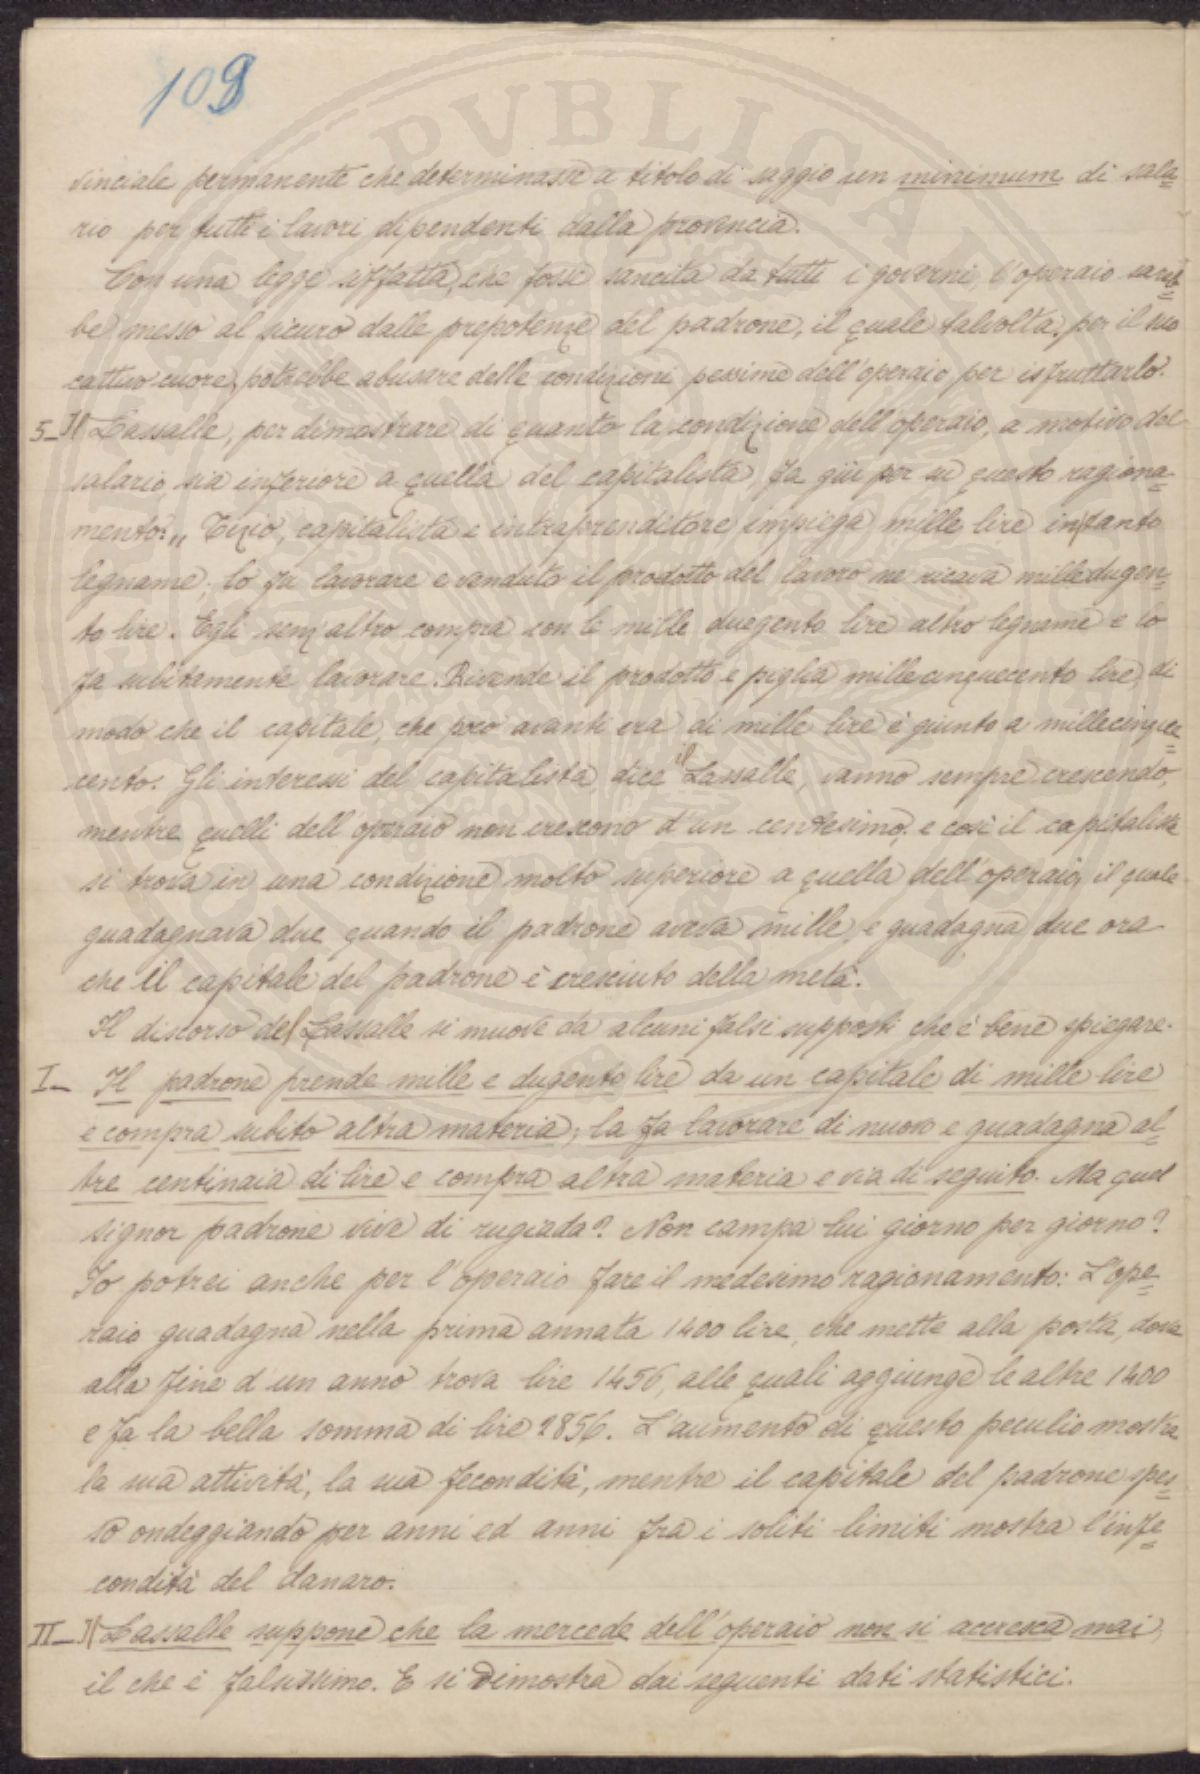 109
vinciale permanente che determinasse a titolo di saggio un minimum di sala=
rio per tutti i lavori dipendenti dalla provincia.
Con una legge siffatta, che fosse sancita da tutti i governi, l'operaio sareb=
be messo al sicuro dalle prepotenze del padrone, il quale talvolta, per il suo
cattivo cuore, potrebbe abusare delle condizioni pessime dell'operaio per isfruttarlo.
5- Il Lassalle, per dimostrare di quanto la condizione dell'operaio, a motivo del
salario, sia inferiore a quella del capitalista, fa giù per su questo ragiona=
mento: „ Tizio, capitalista e intraprenditore impiega mille lire in tanto
legname; lo fa lavorare e venduto il prodotto del lavoro ne ricava milledugen=
to lire. Egli senz'altro compra con le mille duegento lire altro legname e lo
fa subitamente lavorare. Rivende il prodotto e piglia millecinquecento lire, di
modo che il capitale, che poco avanti era di mille lire è giunto a millecinque=
cento. Gli interessi del capitalista, dice il Lassalle, vanno sempre crescendo,
mentre quelli dell'operaio non crescono d'un centesimo; e così il capitalista
si trova in una condizione molto superiore a quella dell'operaio, il quale
guadagnava due quando il padrone aveva mille, e guadagna due ora
che il capitale del padrone è cresciuto della metà.
Il discorso del Lassalle si muove da alcuni falsi supposti che è bene spiegare.
I- Il padrone prende mille e dugento lire da un capitale di mille lire
e compra subito altra materia; la fa lavorare di nuovo e guadagna al=
tre centinaia di lire e compra altra materia e via di seguito. Ma quel
signor padrone vive di rugiada? Non campa lui giorno per giorno?
Io potrei anche per l'operaio fare il medesimo ragionamento: L'ope=
raio guadagna nella prima annata 1400 lire, che mette alla posta, dove
alla fine d'un anno trova lire 1456, alle quali aggiunge le altre 1400
e fa la bella somma di lire 2856. L'aumento di questo peculio mostra
la sua attività, la sua fecondità, mentre il capitale del padrone spes=
so ondeggiando per anni ed anni fra i soliti limiti mostra l'infe=
condità del danaro.
II- Il Lassalle suppone che la mercede dell'operaio non si accresca mai,
il che è falsissimo. E si dimostra dai seguenti dati statistici.